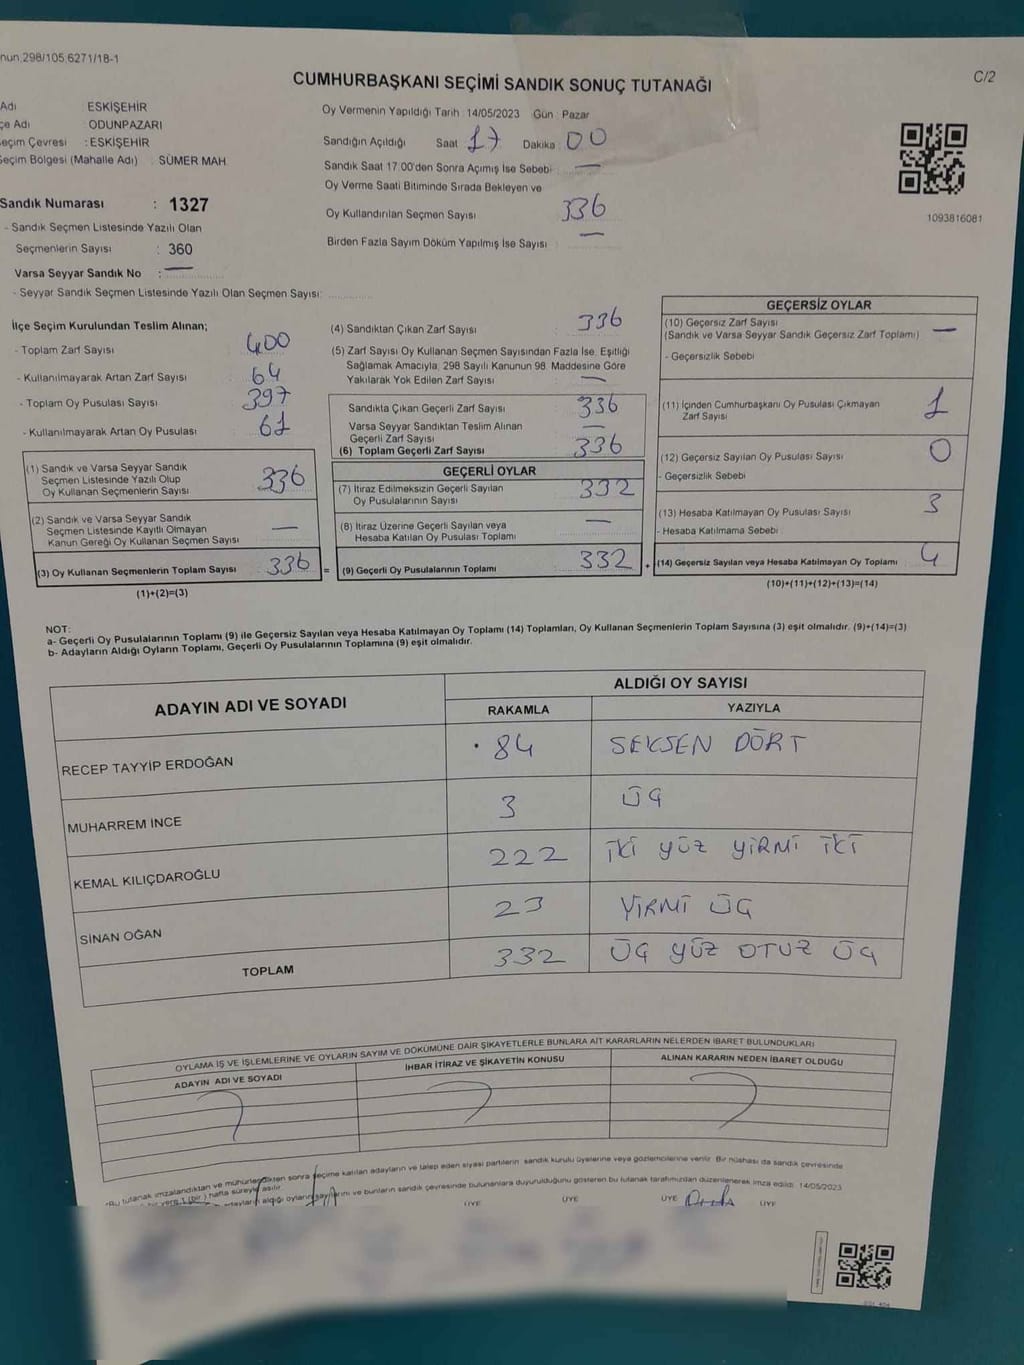 nun.298/105.6271/18-1
C/2
CUMHURBAŞKANI SEÇİMİ SANDIK SONUÇ TUTANAĞI
Adı : ESKİŞEHİR
çe Adı : ODUNPAZARI
eçim Çevresi : ESKİŞEHİR
Seçim Bölgesi (Mahalle Adı) : SÜMER MAH
Sandık Numarası : 1327
- Sandık Seçmen Listesinde Yazılı Olan
Seçmenlerin Sayısı : 360
Varsa Seyyar Sandık No : —
- Seyyar Sandık Seçmen Listesinde Yazılı Olan Seçmen Sayısı:
Oy Vermenin Yapıldığı Tarih : 14/05/2023 Gün : Pazar
Sandığın Açıldığı Saat 17 Dakika 00
Sandık Saat 17:00'den Sonra Açımış İse Sebebi —
Oy Verme Saati Bitiminde Sırada Bekleyen ve
Oy Kullandırılan Seçmen Sayısı 336
Birden Fazla Sayım Döküm Yapılmış İse Sayısı —
1093816081
İlçe Seçim Kurulundan Teslim Alınan;
- Toplam Zarf Sayısı 400
- Kullanılmayarak Artan Zarf Sayısı 64
- Toplam Oy Pusulası Sayısı 397
- Kullanılmayarak Artan Oy Pusulası 61
(1) Sandık ve Varsa Seyyar Sandık
Seçmen Listesinde Yazılı Olup
Oy Kullanan Seçmenlerin Sayısı 336
(2) Sandık ve Varsa Seyyar Sandık
Seçmen Listesinde Kayıtlı Olmayan
Kanun Gereği Oy Kullanan Seçmen Sayısı —
(3) Oy Kullanan Seçmenlerin Toplam Sayısı 336 =
(1)+(2)=(3)
(4) Sandıktan Çıkan Zarf Sayısı 336
(5) Zarf Sayısı Oy Kullanan Seçmen Sayısından Fazla İse, Eşitliği
Sağlamak Amacıyla, 298 Sayılı Kanunun 98. Maddesine Göre
Yakılarak Yok Edilen Zarf Sayısı —
Sandıkta Çıkan Geçerli Zarf Sayısı 336
Varsa Seyyar Sandıktan Teslim Alınan
Geçerli Zarf Sayısı —
(6) Toplam Geçerli Zarf Sayısı 336
GEÇERLİ OYLAR
(7) İtiraz Edilmeksizin Geçerli Sayılan
Oy Pusulalarının Sayısı 332
(8) İtiraz Üzerine Geçerli Sayılan veya
Hesaba Katılan Oy Pusulası Toplamı —
(9) Geçerli Oy Pusulalarının Toplamı 332 +
GEÇERSİZ OYLAR
(10) Geçersiz Zarf Sayısı
(Sandık ve Varsa Seyyar Sandık Geçersiz Zarf Toplamı) —
- Geçersizlik Sebebi
(11) İçinden Cumhurbaşkanı Oy Pusulası Çıkmayan
Zarf Sayısı 1
(12) Geçersiz Sayılan Oy Pusulası Sayısı 0
- Geçersizlik Sebebi
(13) Hesaba Katılmayan Oy Pusulası Sayısı 3
- Hesaba Katılmama Sebebi
(14) Geçersiz Sayılan veya Hesaba Katılmayan Oy Toplamı 4
(10)+(11)+(12)+(13)=(14)
NOT:
a- Geçerli Oy Pusulalarının Toplamı (9) ile Geçersiz Sayılan veya Hesaba Katılmayan Oy Toplamı (14) Toplamları, Oy Kullanan Seçmenlerin Toplam Sayısına (3) eşit olmalıdır. (9)+(14)=(3)
b- Adayların Aldığı Oyların Toplamı, Geçerli Oy Pusulalarının Toplamına (9) eşit olmalıdır.
ADAYIN ADI VE SOYADI
ALDIĞI OY SAYISI
RAKAMLA YAZIYLA
RECEP TAYYİP ERDOĞAN 84 SEKSEN DÖRT
MUHARREM İNCE 3 ÜÇ
KEMAL KILIÇDAROĞLU 222 İKİ YÜZ YİRMİ İKİ
SİNAN OĞAN 23 YİRMİ ÜÇ
TOPLAM 332 ÜÇ YÜZ OTUZ ÜÇ
OYLAMA İŞ VE İŞLEMLERİNE VE OYLARIN SAYIM VE DÖKÜMÜNE DAİR ŞİKAYETLERLE BUNLARA AİT KARARLARIN NELERDEN İBARET BULUNDUKLARI
ADAYIN ADI VE SOYADI İHBAR İTİRAZ VE ŞİKAYETİN KONUSU ALINAN KARARIN NEDEN İBARET OLDUĞU
*Bu tutanak imzalandıktan ve mühürlendikten sonra seçime katılan adayların ve talep eden siyasi partilerin sandık kurulu üyelerine veya gözlemcilerine verilir. Bir nüshası da sandık çevresinde
bir yere 1 (bir) hafta süreyle asılır.
adayların aldığı oyların sayılarını ve bunların sandık çevresinde bulunanlara duyurulduğunu gösteren bu tutanak tarafımızdan düzenlenerek imza edildi. 14/05/2023
ÜYE ÜYE ÜYE ÜYE